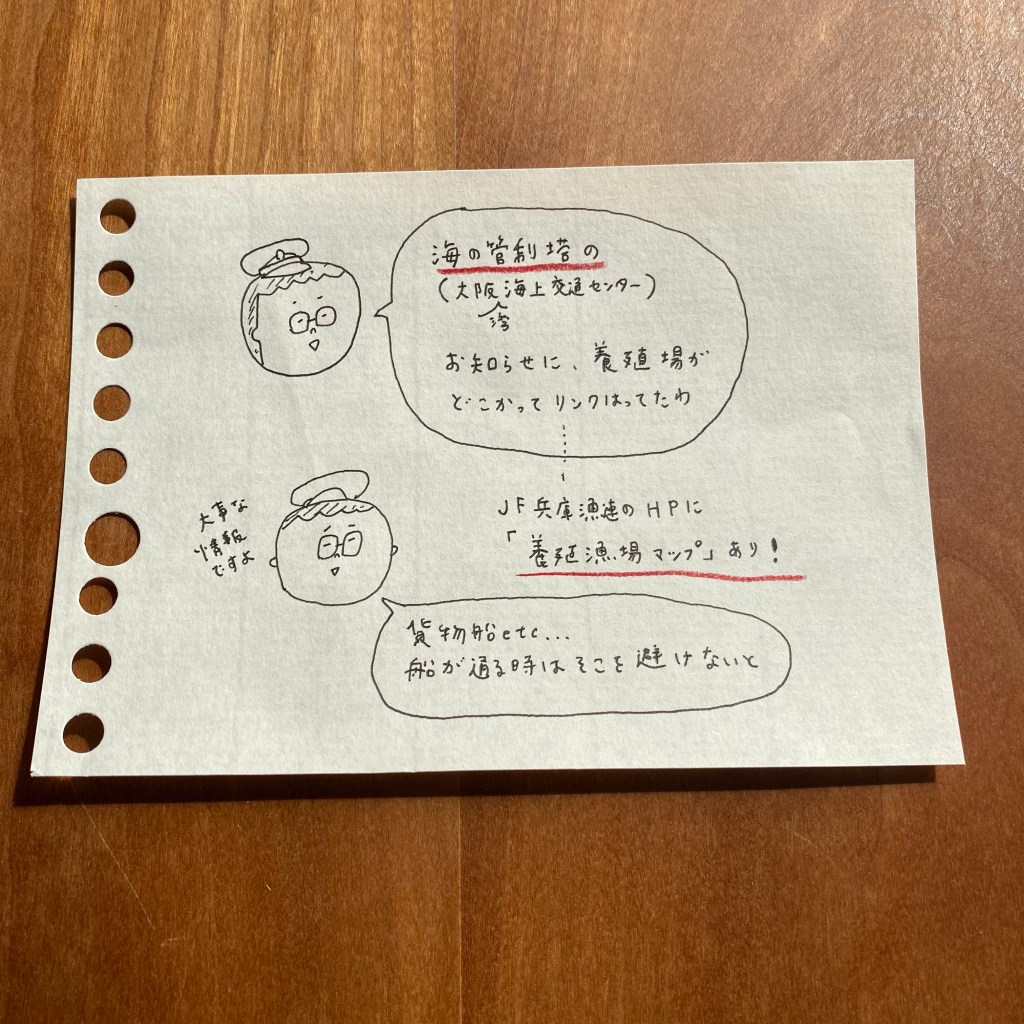 海の管制塔の
(大阪湾海上交通センター)
お知らせに、養殖場が
どこかってリンクはってたわ
JF兵庫漁連のHPに
「養殖漁場マップ」あり!
大事な
情報
ですよ
貨物船etc...
船が通る時はそこを避けないと